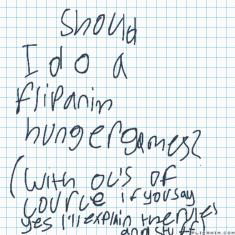 Should
I do a
flipanim
hungergames?
(with oc's of
cource if you say
yes I'll explain the rules
and stuff
FLIPANIM.COM